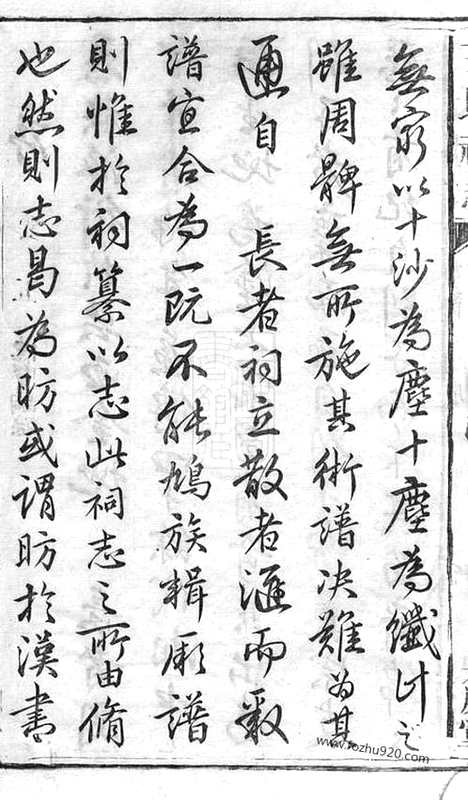 無窮以十沙為塵十塵為纖計之
雖周髀無所施其術譜決難為其
邇自　長者祠立散者滙而數
譜宜合為一既不能鳩族輯厥譜
則惟於祠纂以志此祠志之所由脩
也然則志曷為昉或謂昉於漢書
www.rozhu920.com